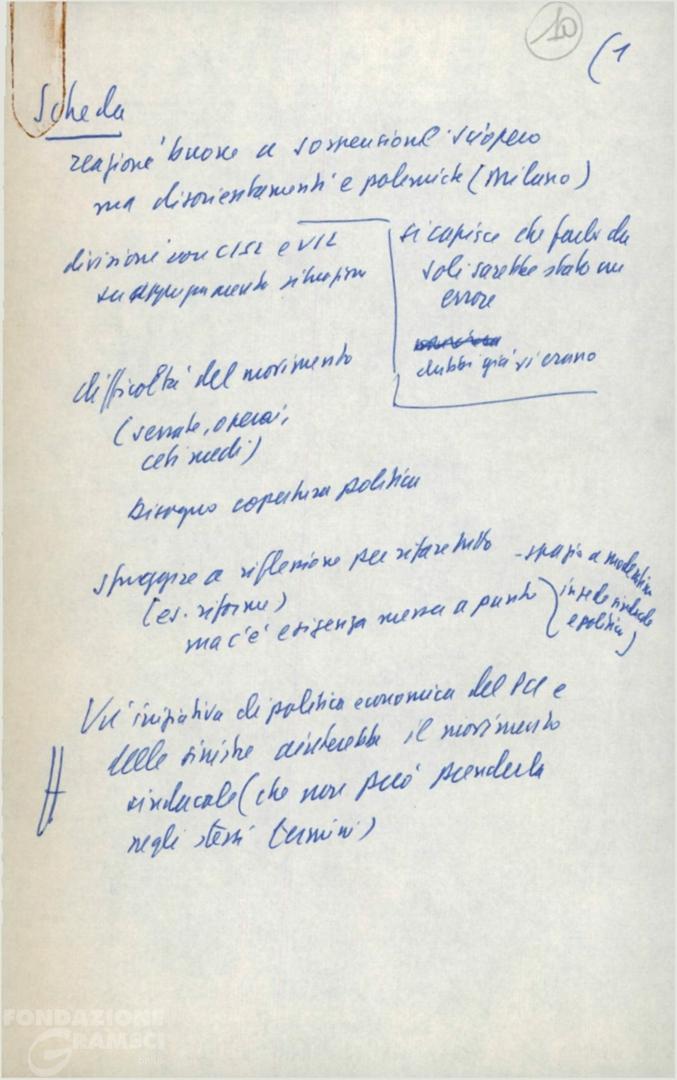 10
(1
Scheda
reazione buone a sospensione sciopero
ma disorientamenti e polemiche (Milano)
divisione con CISL e UIL
su aggiornamento situazione
si capisce che farlo da
soli sarebbe stato un
errore
dubbi già vi erano
difficoltà del movimento
(serrate, operai,
ceti medi)
Bisogno copertura politica
sfuggire a riflessione per rifare tutto
(es. riforme)
ma c'è esigenza messa a punto
- spazio a
in sede sindacale
e politica)
Un'iniziativa di politica economica del PCI e
delle sinistre aiuterebbe il movimento
sindacale (che non può prenderla
negli stessi termini)
FONDAZIONE
GRAMSCI